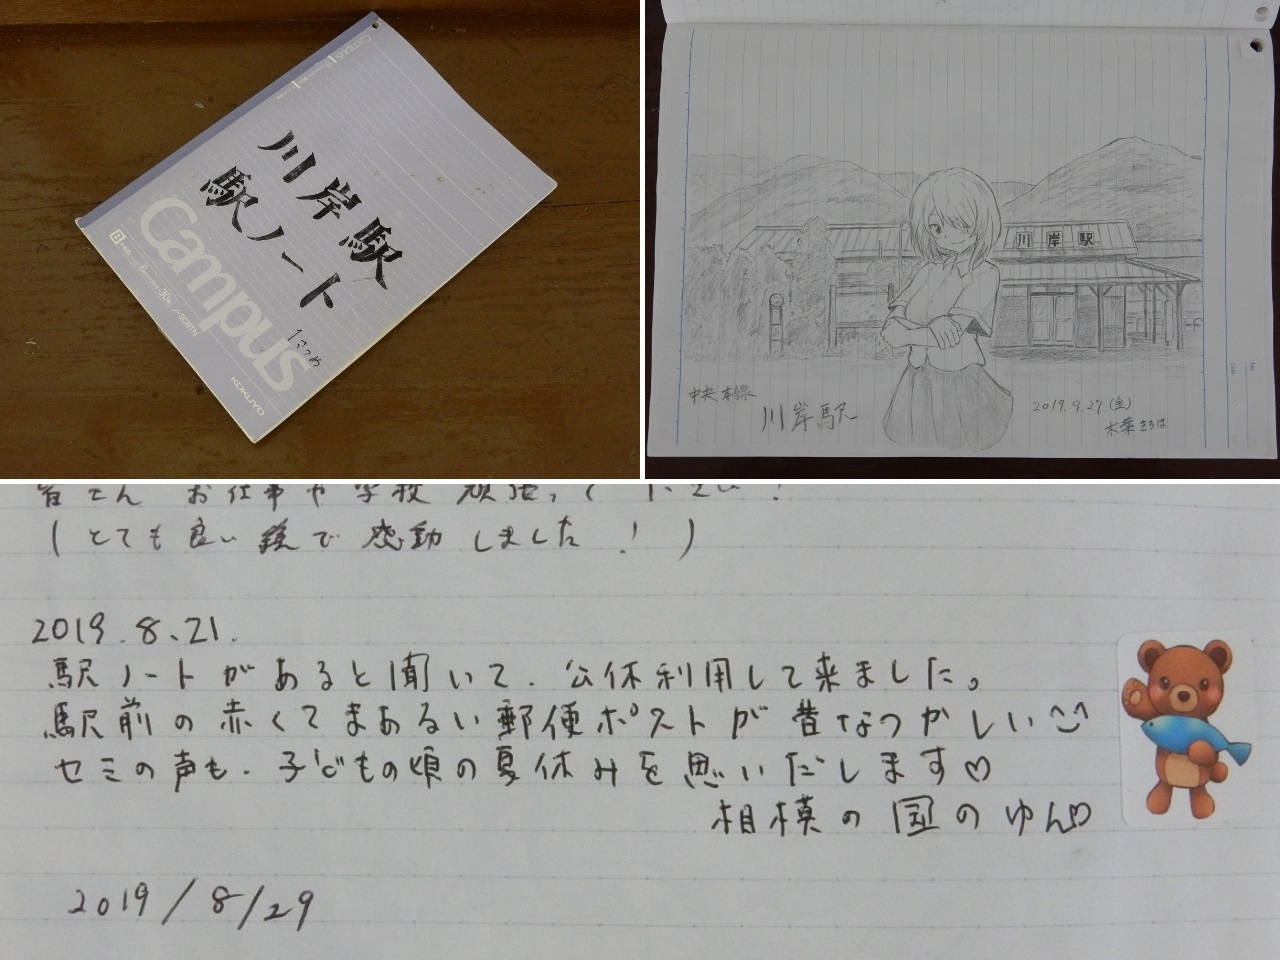 川岸駅
駅ノート
1さつめ
Campus
KOKUYO
川岸駅
中央本線
川岸駅
2019.9.27(金)
(とても良い絵で感動しました!)
2019.8.21.
駅ノートがあると聞いて、公休利用して来ました。
駅前の赤くてまあるい郵便ポストが昔なつかしい^^
セミの声も、子どもの頃の夏休みを思いだします♡
相模の国のゆん♡
2019/8/29